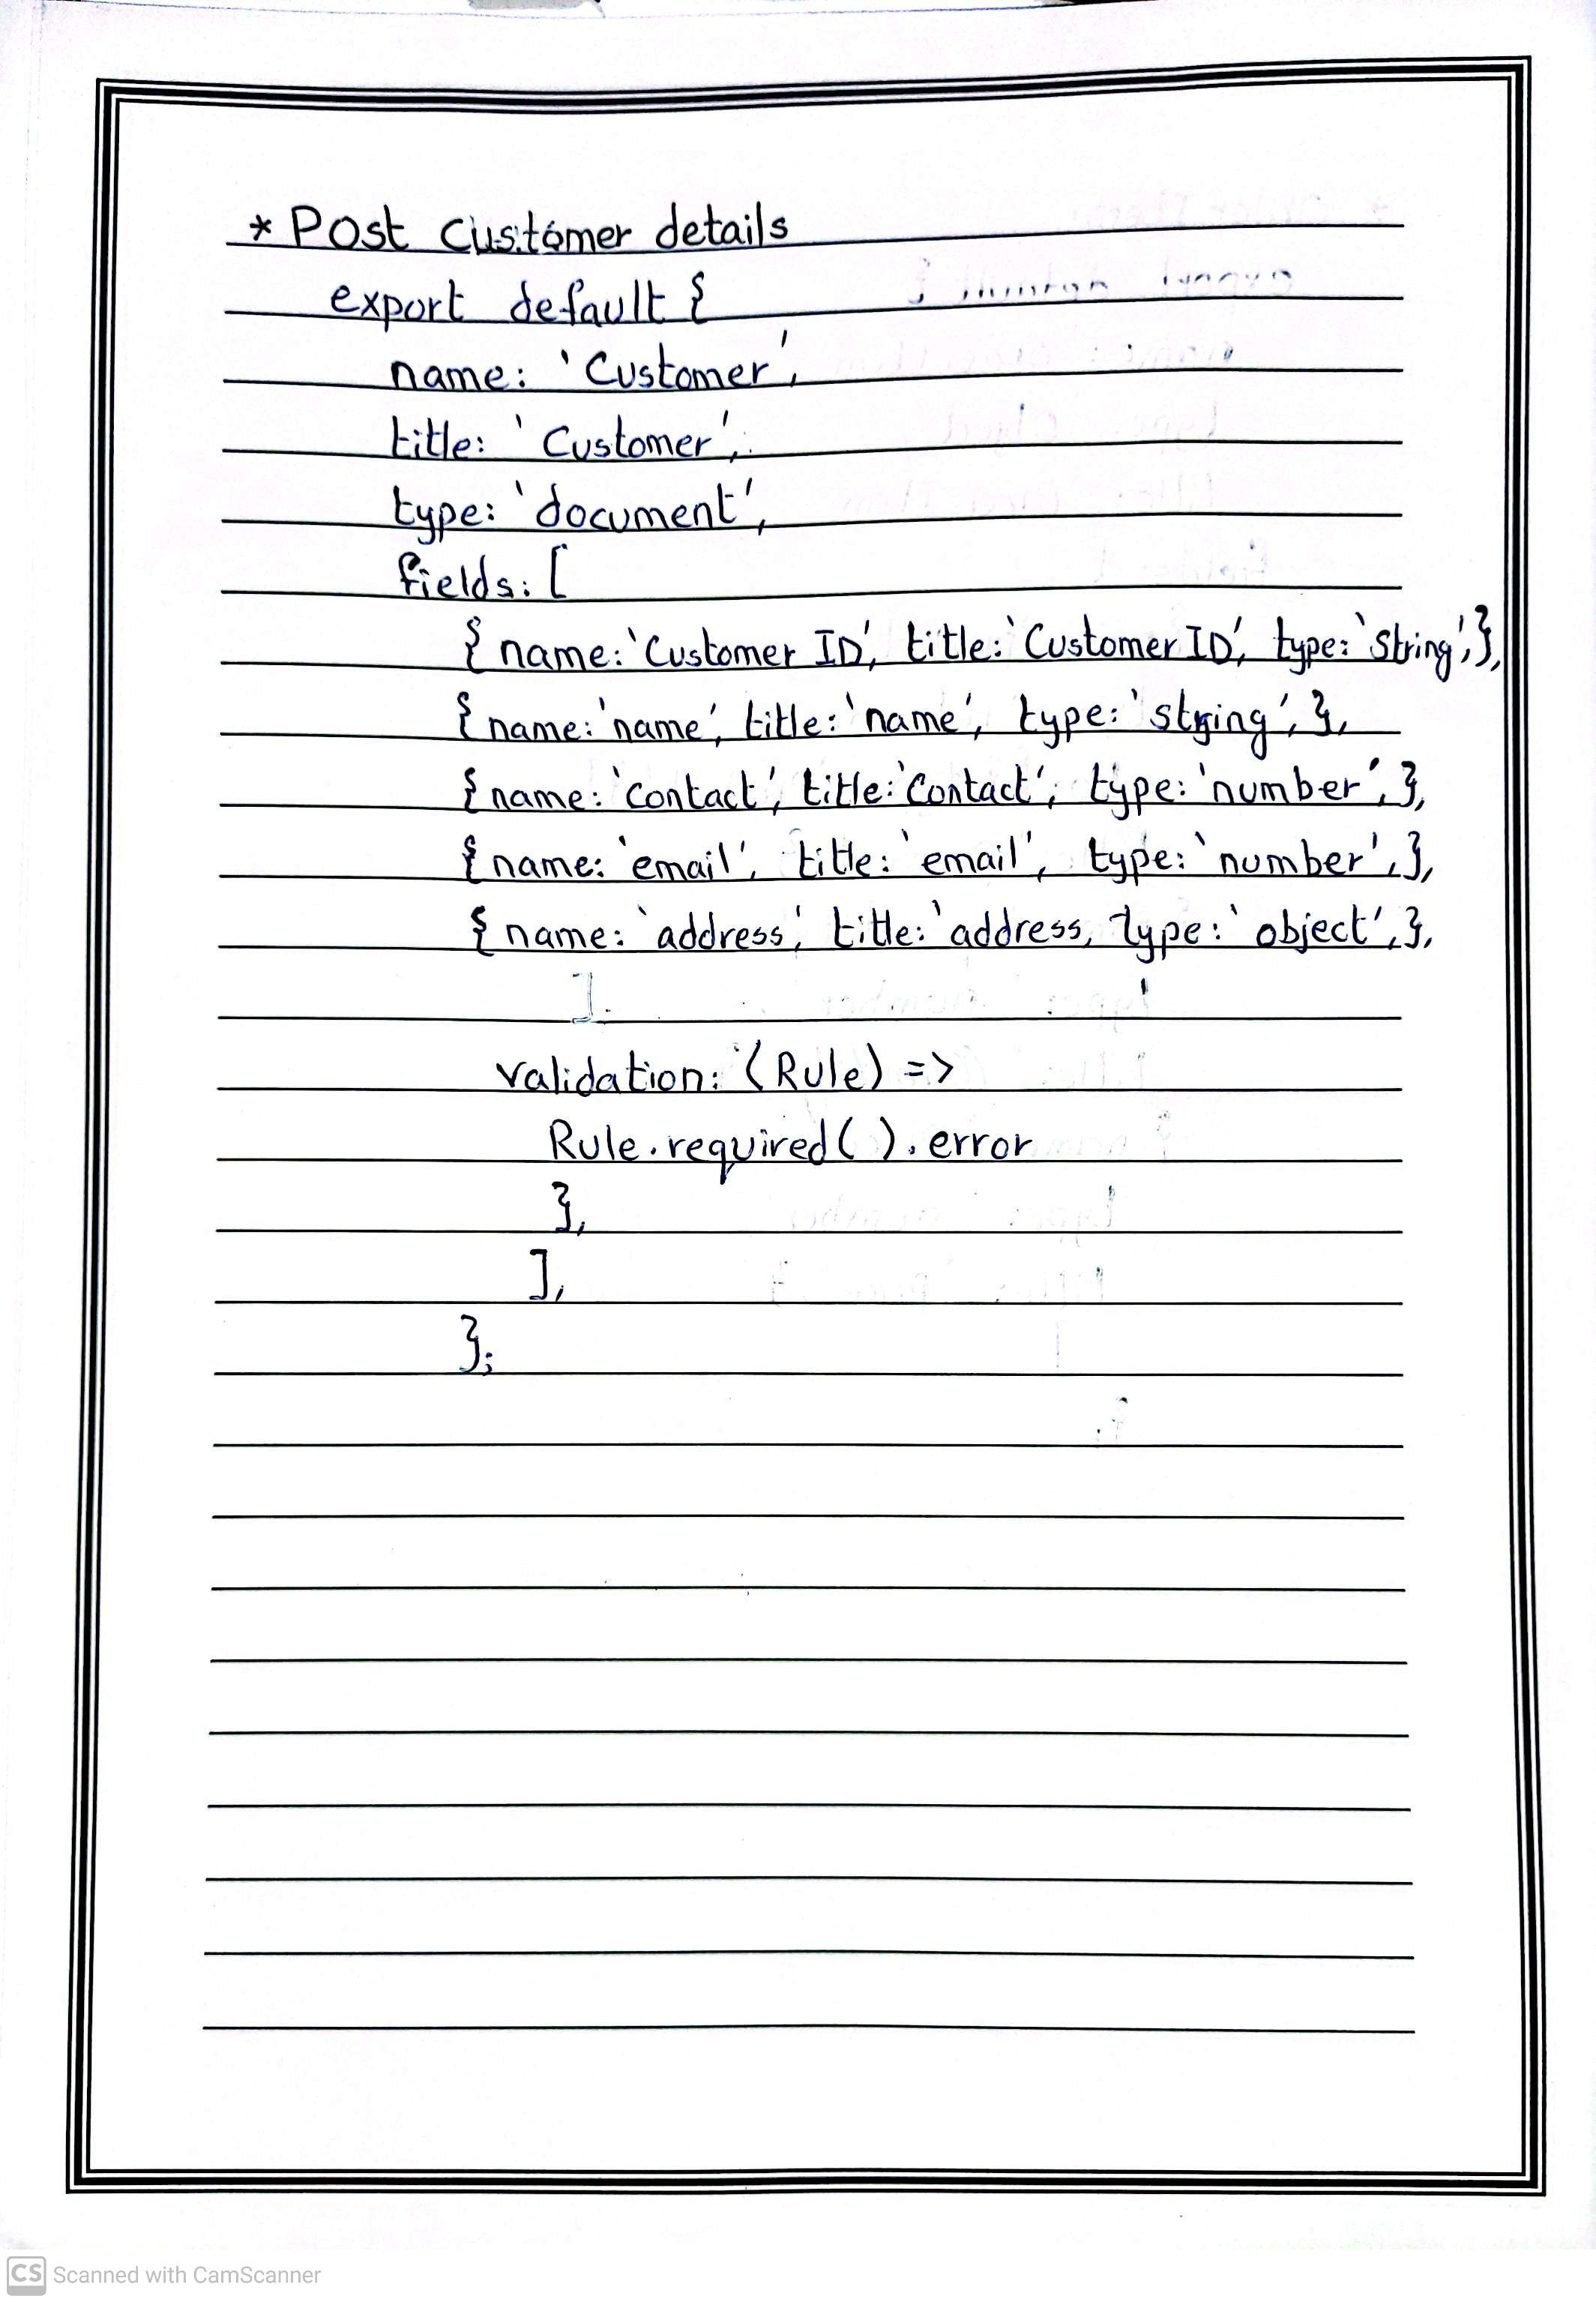 * Post customer details
export default {
name: 'Customer',
title: 'Customer',
type: 'document',
fields: [
{ name: 'Customer ID', title: 'Customer ID', type: 'string', },
{ name: 'name', title: 'name', type: 'string', },
{ name: 'contact', title: 'contact', type: 'number', },
{ name: 'email', title: 'email', type: 'number', },
{ name: 'address', title: 'address, type: 'object', },
].
validation: (Rule) =>
Rule.required( ).error
},
],
};
CS Scanned with CamScanner